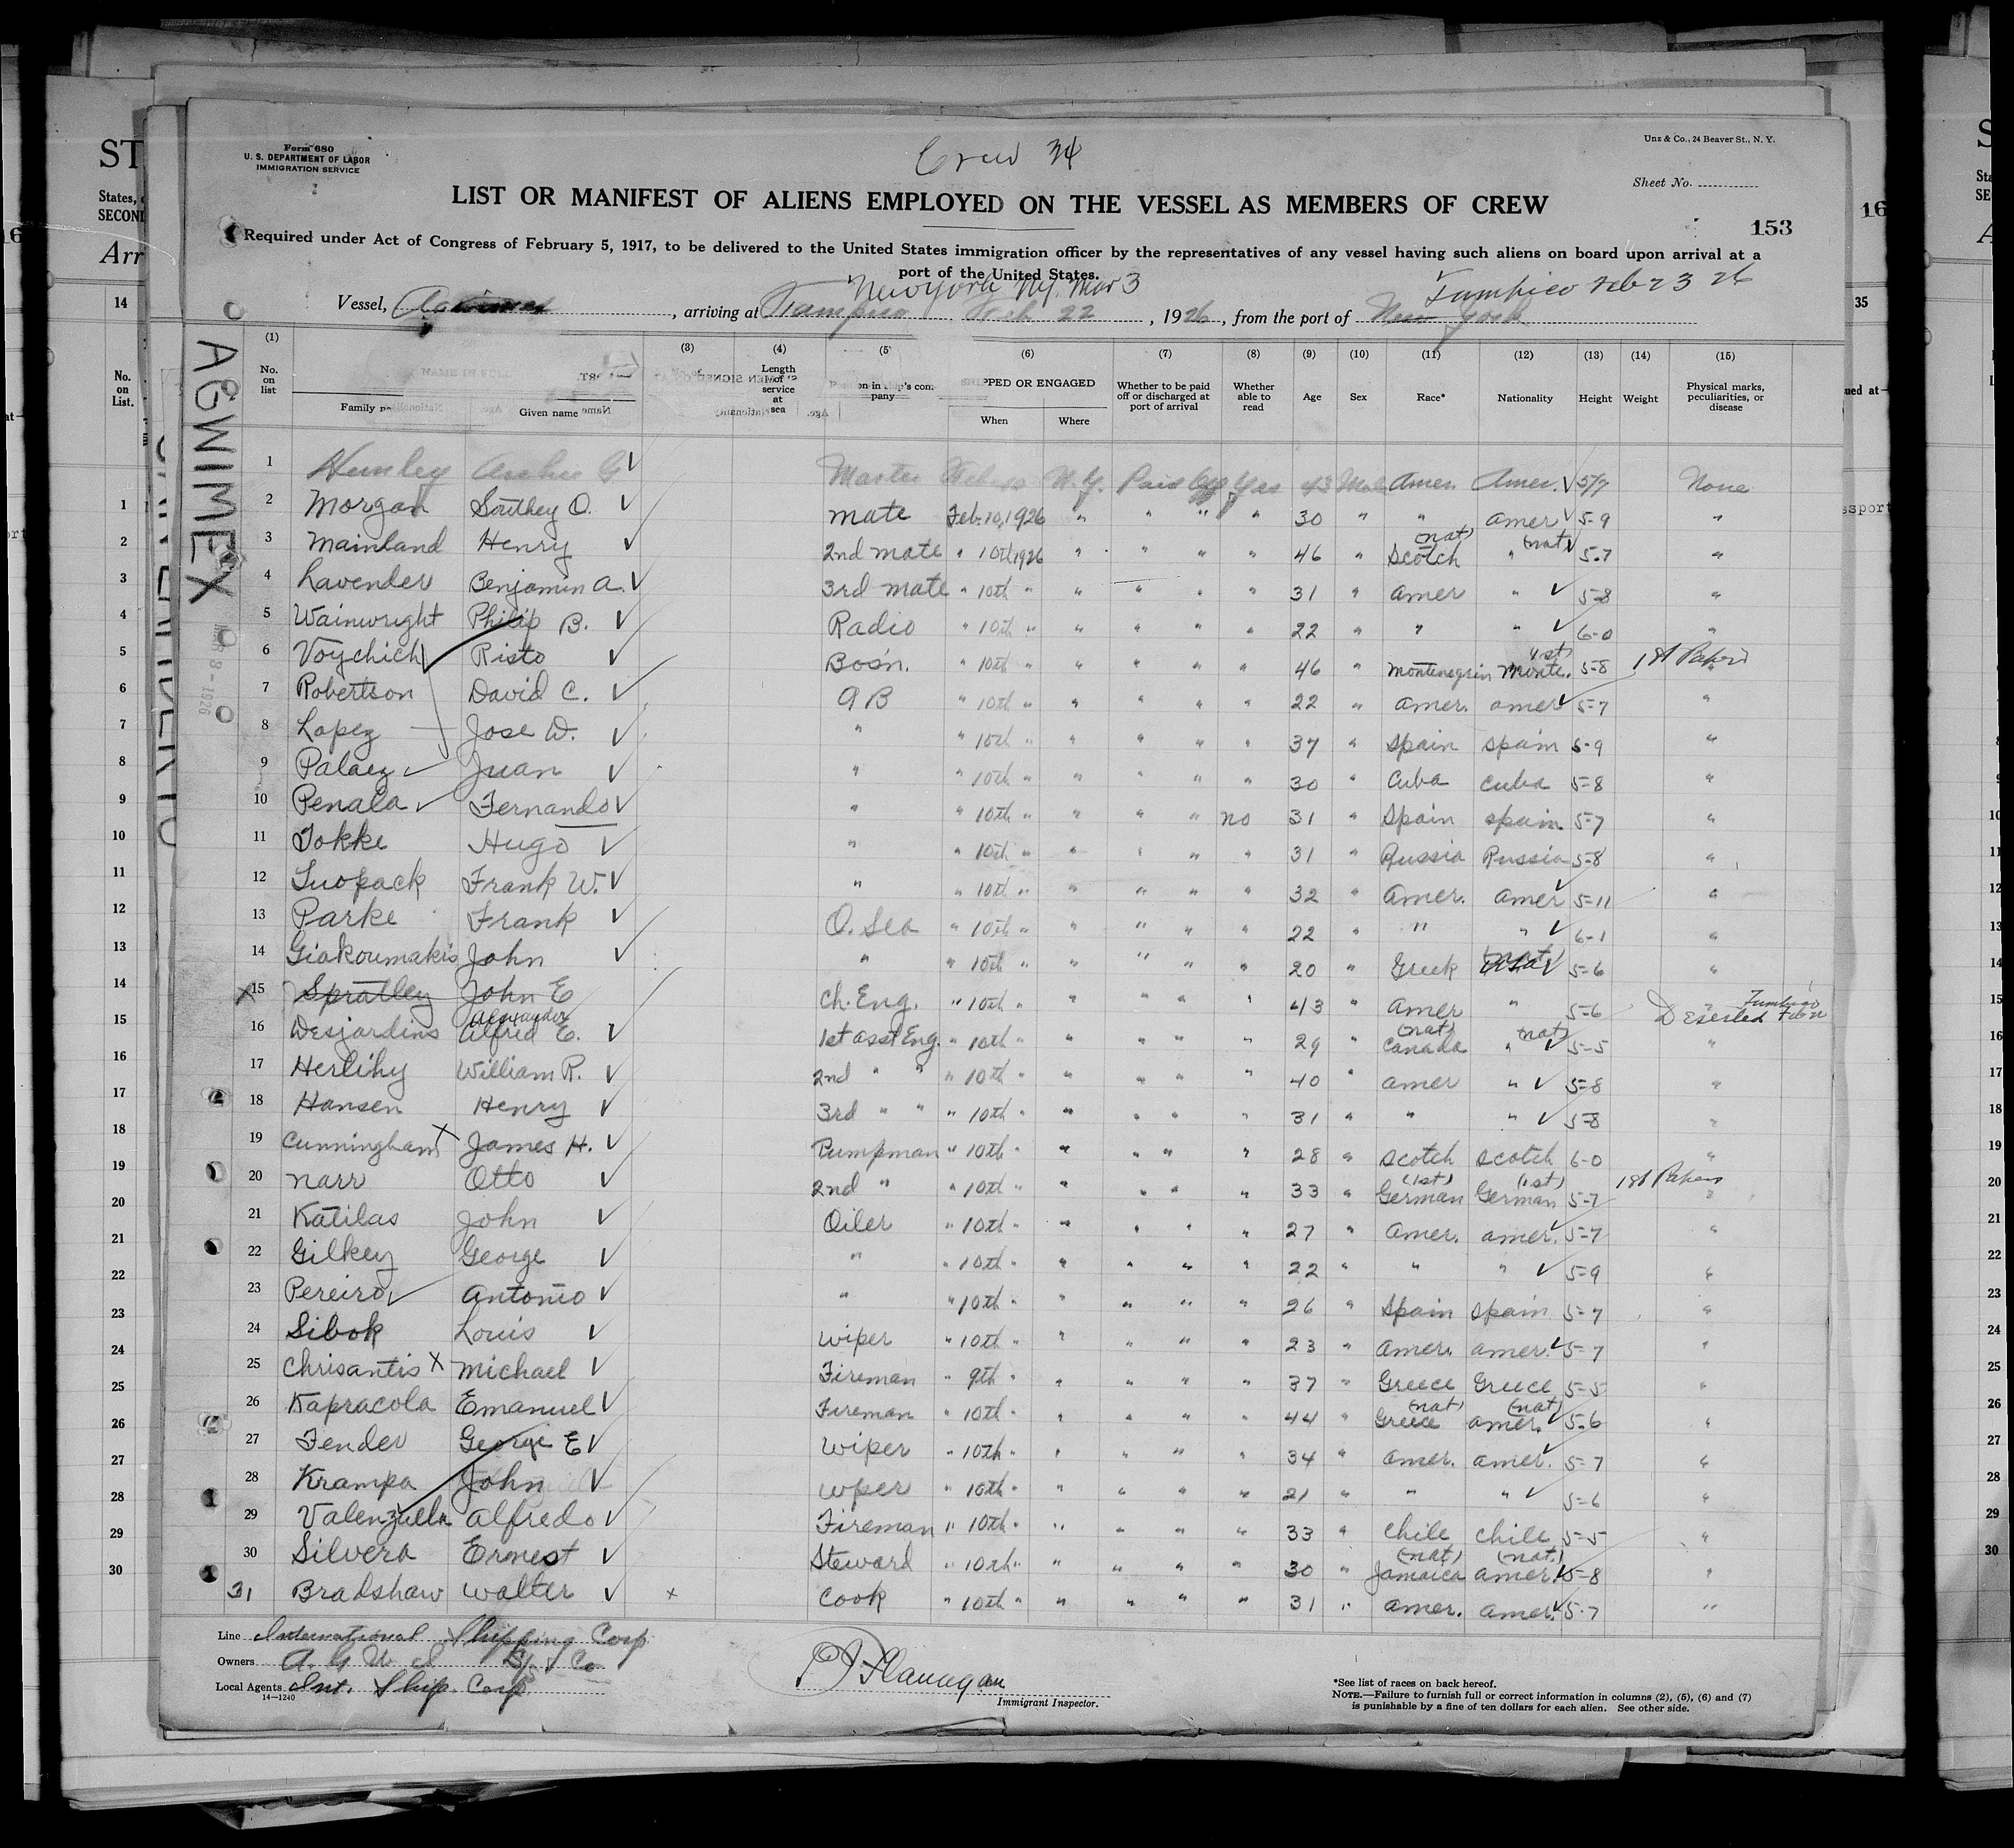 Form 680
U. S. DEPARTMENT OF LABOR
IMMIGRATION SERVICE
Crew 34
Unz & Co., 24 Beaver St., N. Y.
Sheet No.
LIST OR MANIFEST OF ALIENS EMPLOYED ON THE VESSEL AS MEMBERS OF CREW
153
Required under Act of Congress of February 5, 1917, to be delivered to the United States immigration officer by the representatives of any vessel having such aliens on board upon arrival at a
port of the United States.
New York Ny. Mar 3 Tampico Feb 23 26
Vessel, , arriving at Tampico Feb 22, 1926, from the port of New York
AGWIMEX
(1) (3) (4) (5) (6) (7) (8) (9) (10) (11) (12) (13) (14) (15)
No. on list Family Given name Length of service at sea on in ship's company PPED OR ENGAGED When Where Whether to be paid off or discharged at port of arrival Whether able to read Age Sex Race* Nationality Height Weight Physical marks, peculiarities, or disease
1 Archie G ✓ Master N.Y. Paid Off Yes 43 Male Amer. Amer. ✓ 5/7 None
2 Morgan Southey O. ✓ mate Feb. 10, 1926 " " " " 30 " " amer ✓ 5-9 "
3 Mainland Henry ✓ 2nd mate " 10th 1926 " " " " 46 " (nat) Scotch " (nat) ✓ 5-7 "
4 Lavender Benjamin A. ✓ 3rd mate " 10th " " " " " 31 " amer " ✓ 5-8 "
5 Wainwright Philip B. ✓ Radio " 10th " " " " " 22 " " " ✓ 6-0 "
6 Voychich Risto ✓ Bos'n. " 10th " " " " " 46 " Montenegrin (1st) Monte. 5-8 1st Papers "
7 Robertson David C. ✓ 9B " 10th " " " " 22 " amer. amer ✓ 5-7 "
8 Lopez Jose W. ✓ " " 10th " " " " " 37 " Spain Spain 5-9 "
9 Palaez ✓ Juan ✓ " " 10th " " " " " 30 " Cuba Cuba 5-8 "
10 Penala ✓ Fernando ✓ " " 10th " " " " no 31 " Spain Spain 5-7 "
11 Tokke Hugo ✓ " " 10th " " " " " 31 " Russia Russia 5-8 "
12 Frank W. ✓ " " 10th " " " " " 32 " Amer. amer ✓ 5-11 "
13 Parke Frank ✓ O. Sea " 10th " " " " " 22 " " " ✓ 6-1 "
14 Giakoumakis John ✓ " " 10th " " " " " 20 " Greek ✓ 5-6 "
X 15 Spratley John E Ch. Eng. " 10th " " " " 43 " Amer " 5-6 Deserted Tampico Feb
16 Desjardins Alexander Alfred E. ✓ 1st asst Eng. " 10th " " " " " 29 " (nat) Canada " (nat) ✓ 5-5 "
17 Herlihy William R. ✓ 2nd " " " 10th " " " " " 40 " amer " ✓ 5-8 "
18 Hansen Henry ✓ 3rd " " " 10th " " " " " 31 " " " ✓ 5-8 "
19 Cunningham X James H. ✓ Pumpman " 10th " " " " " 28 " Scotch Scotch 6-0 "
20 Narr Otto ✓ 2nd " " 10th " " " " " 33 " (1st) German (1st) German 5-7 1st Papers "
21 Katilas John ✓ Oiler " 10th " " " " " 27 " Amer. amer. ✓ 5-7 "
22 Gilkey George ✓ " " 10th " " " " " 22 " " " ✓ 5-9 "
23 Pereiro ✓ Antonio ✓ " " 10th " " " " " 26 " Spain Spain 5-7 "
24 Sibok Louis ✓ Wiper " 10th " " " " " 23 " Amer. amer. ✓ 5-7 "
25 Chrisantis X Michael ✓ Fireman " 9th " " " " " 37 " Greece Greece 5-5 "
26 Kapracola Emanuel ✓ Fireman " 10th " " " " " 44 " (nat) Greece (nat) amer. ✓ 5-6 "
27 Fender George E ✓ Wiper " 10th " " " " " 34 " amer. amer. ✓ 5-7 "
28 Krampa John ✓ Wper " 10th " " " " " 21 " " " ✓ 5-6 "
29 Valenzuella Alfredo ✓ Fireman " 10th " " " " " 33 " Chile Chile 5-5 "
30 Silvera Ernest ✓ Steward " 10th " " " " " 30 " (nat) Jamaica (nat.) amer. ✓ 5-8 "
31 Bradshaw Walter ✓ x Cook " 10th " " " " " 31 " amer. amer. ✓ 5-7 "
Line International Shipping Corp
Owners A. G. W. I. Co
Local Agents Int. Ship. Corp
14—1240
Flanagan
Immigrant Inspector.
*See list of races on back hereof.
NOTE.—Failure to furnish full or correct information in columns (2), (5), (6) and (7)
is punishable by a fine of ten dollars for each alien. See other side.